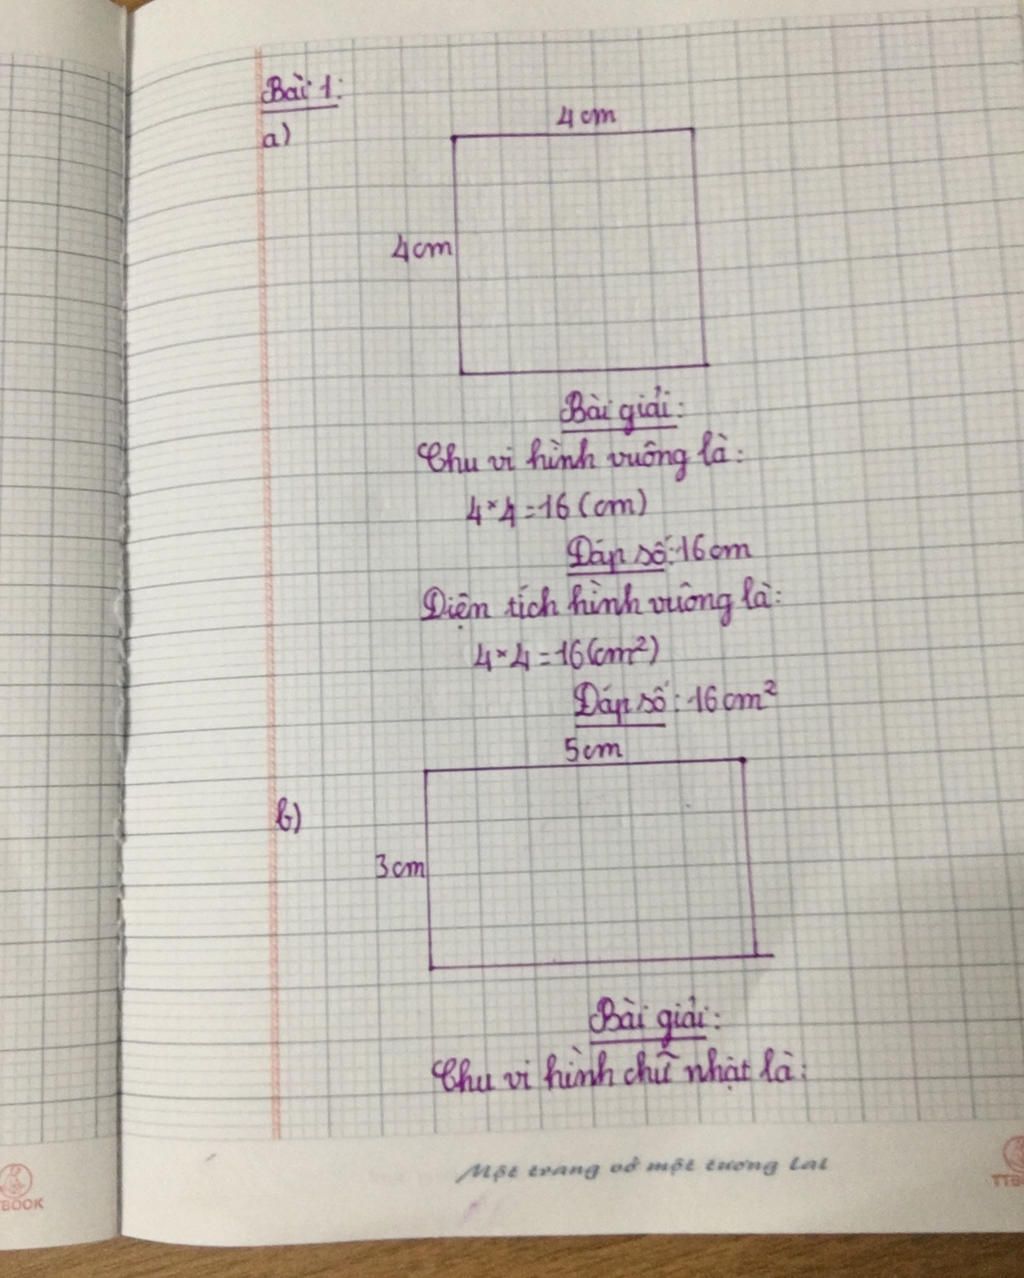 Bài 1:
a)
4cm
4cm
Bài giải:
Chu vi hình vuông là:
4×4=16(cm)
Đáp số:16cm
Diện tích hình vuông là:
4×4=16(cm²)
Đáp số:16cm²
5cm
b)
3cm
Bài giải:
Chu vi hình chữ nhật là:
Một trang vở một tương lai
BOOK
TTB